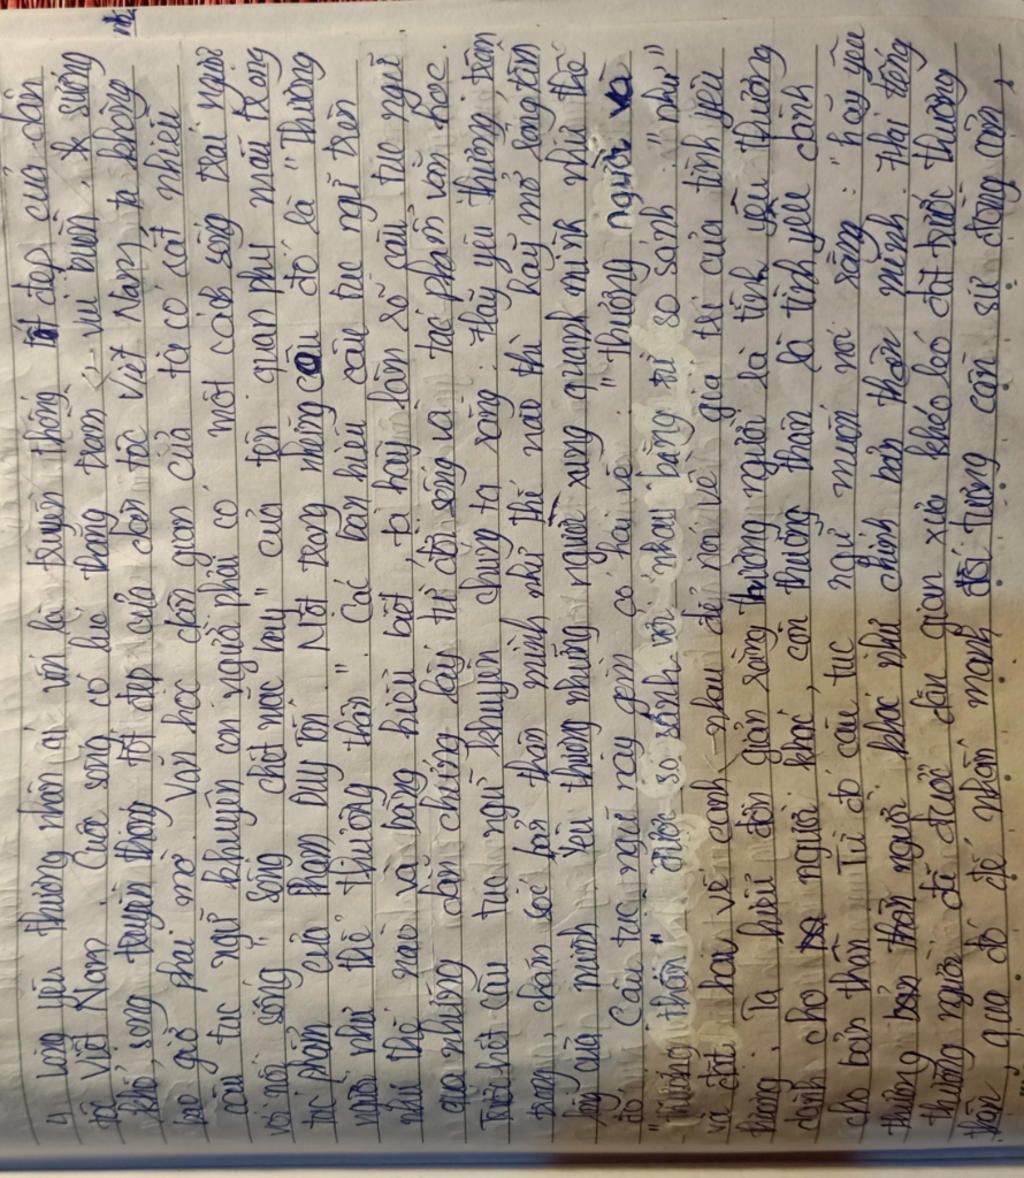 Lòng yêu thương nhân ái vốn là truyền thống tốt đẹp của dân
tộc Việt Nam. Cuộc sống có lúc thăng trầm, vui buồn, sướng
khổ, song truyền thống tốt đẹp của dân tộc Việt Nam ta không
bao giờ phai mờ. Văn học dân gian của ta có rất nhiều
câu tục ngữ khuyên con người phải có một cách sống trái ngược
với lối sống "sống chết mặc bay" của tên quan phụ mẫu trong
tác phẩm của Phạm Duy Tốn. Một trong những câu đó là "Thương
người như thể thương thân". Các bạn hiểu câu tục ngữ trên
như thế nào và bằng hiểu biết ta hãy làm rõ câu tục ngữ
qua những dẫn chứng lấy từ đời sống và tác phẩm văn học.
Trước hết câu tục ngữ khuyên chúng ta rằng: Hãy yêu thương, trân
trọng, chăm sóc bản thân mình như thế nào thì hãy mở rộng tấm
lòng của mình yêu thương những người xung quanh mình như thế
đó. Câu tục ngữ này gồm có hai vế: "thương người" và
"thương thân" được so sánh với nhau bằng từ so sánh "như"
và đặt hai vế cạnh nhau để nói về giá trị của tình yêu
thương. Ta hiểu đơn giản rằng thương người là tình yêu thương
dành cho người khác, còn thương thân là tình yêu dành
cho bản thân. Từ đó câu tục ngữ muốn nói rằng: "hãy yêu
thương bản thân người khác như chính bản thân mình. Hai tiếng
thương người đã được dân gian xưa khéo léo đặt trước thương
thân, qua đó để nhấn mạnh đối tượng cần sự đồng cảm,